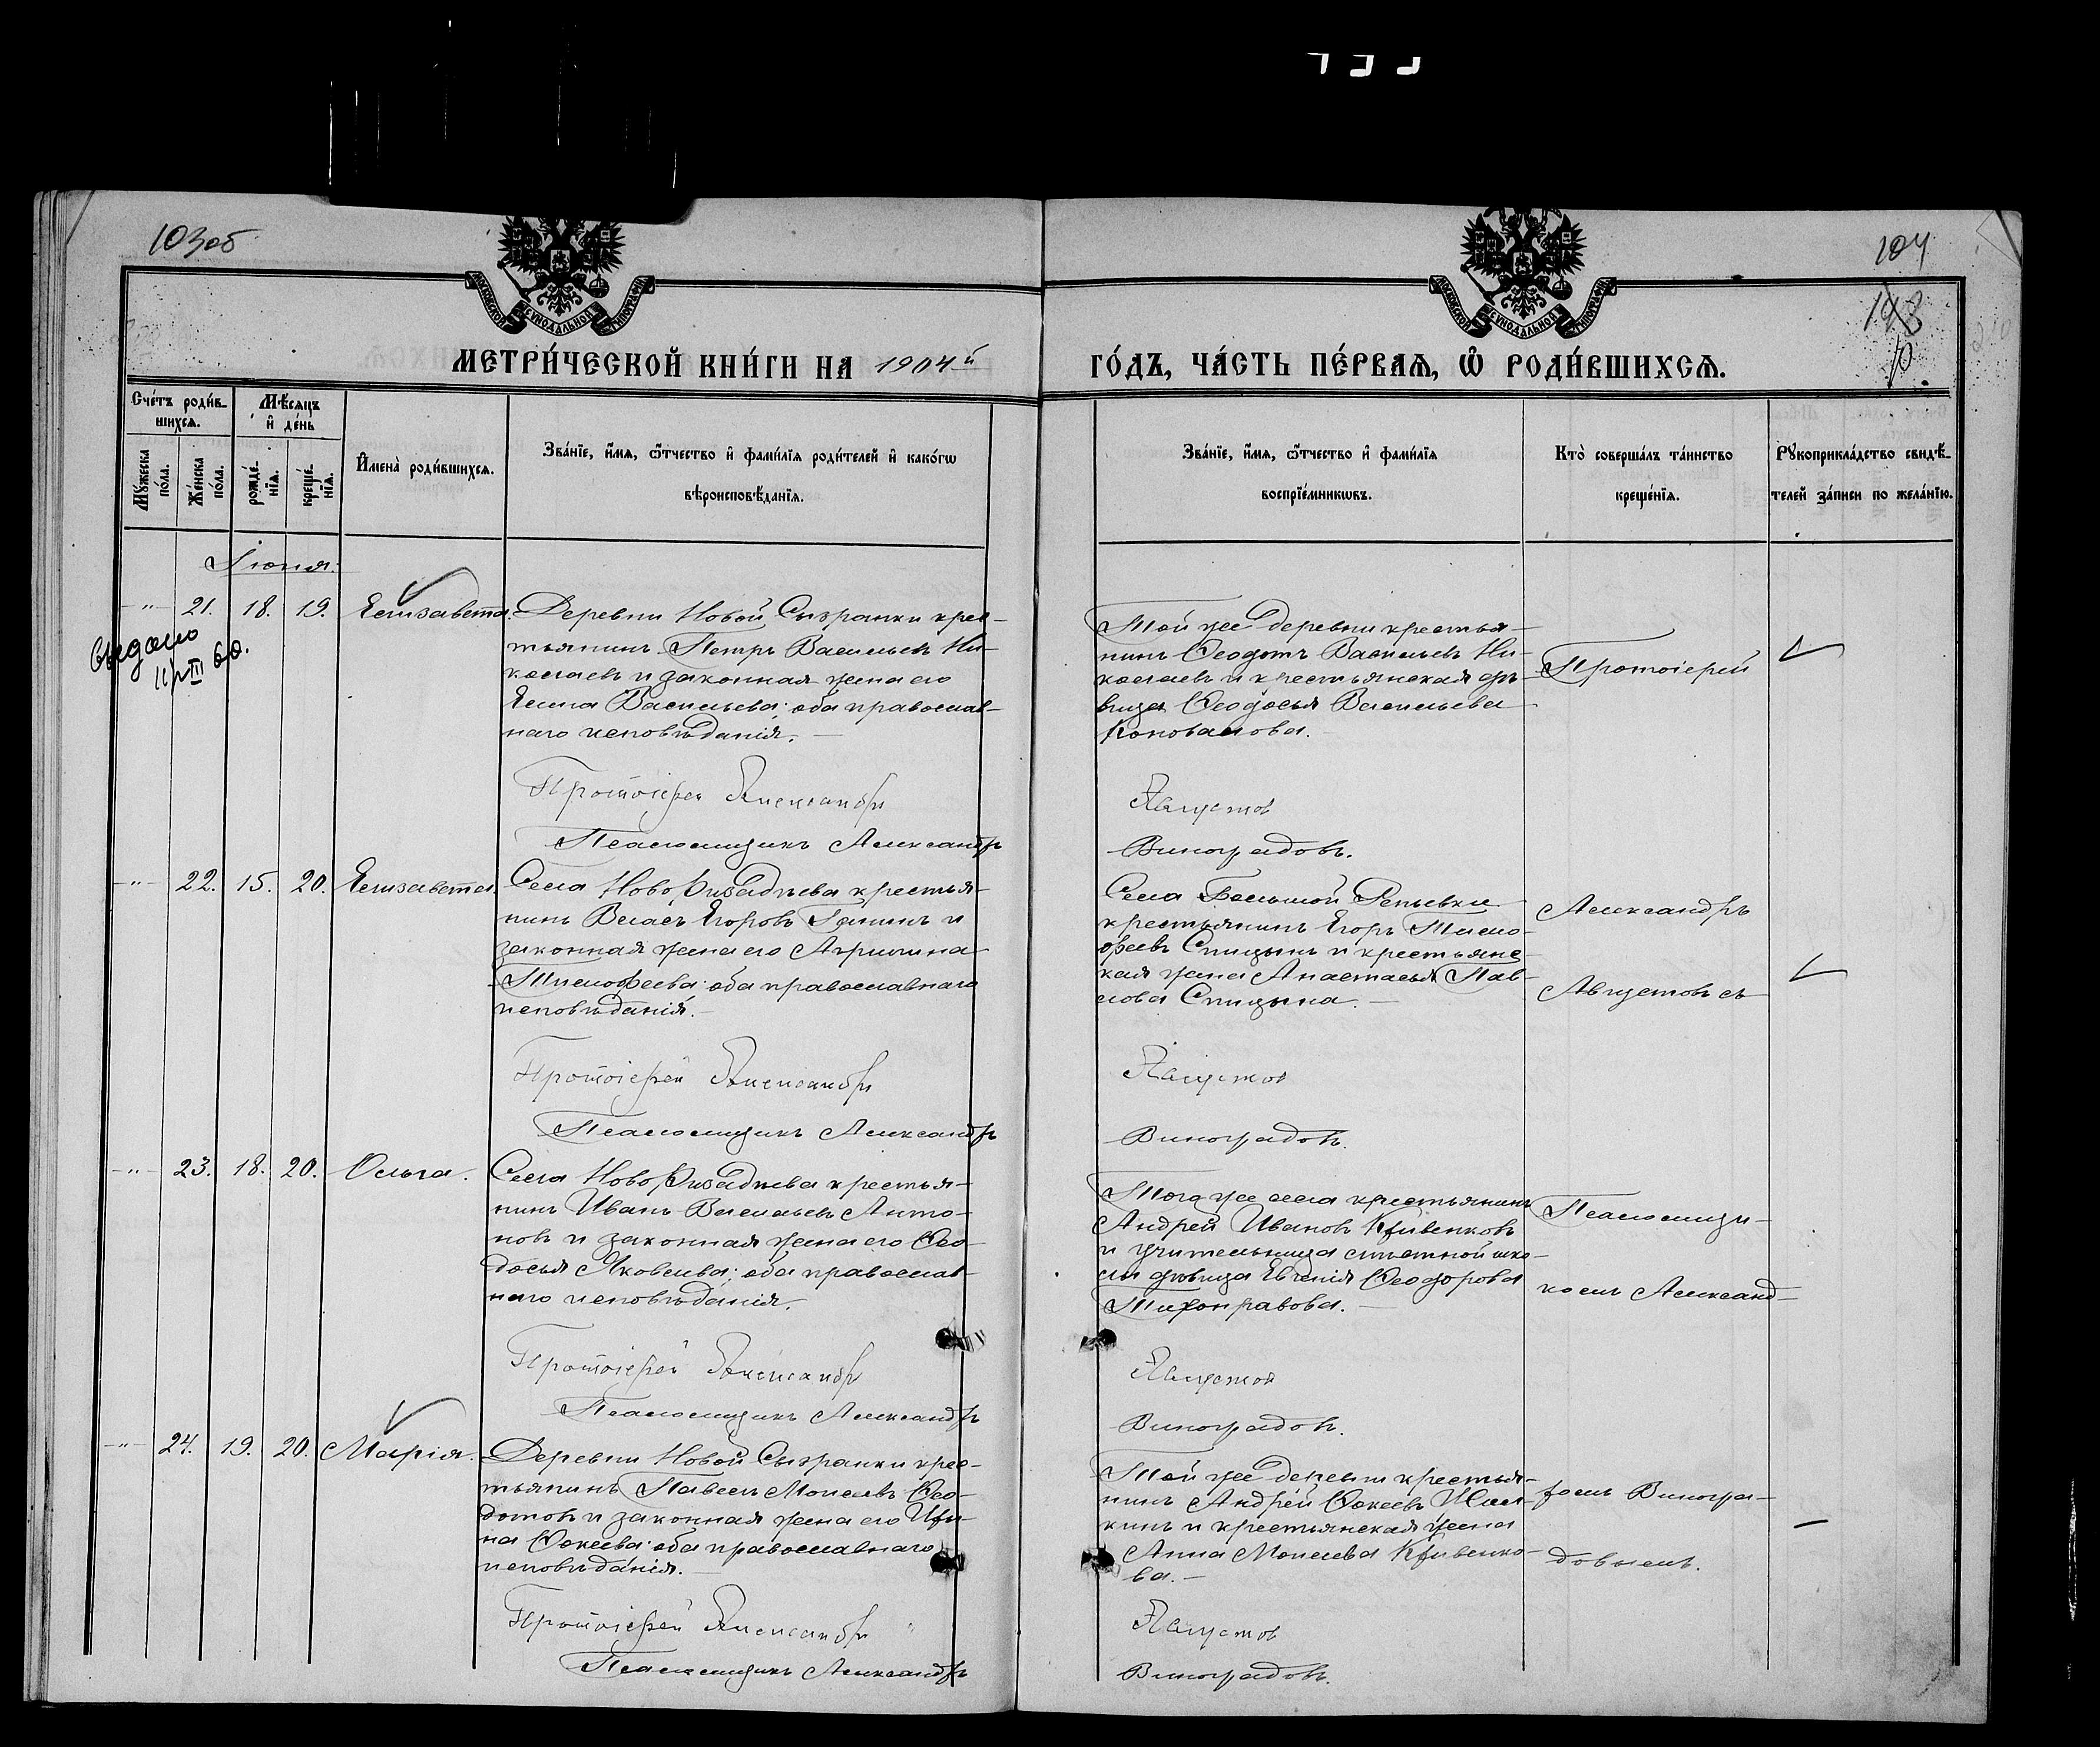 103об
104
148
МОСКОВСКОЙ СѴНОДАЛЬНОЙ ТИПОГРАФІИ
МОСКОВСКОЙ СѴНОДАЛЬНОЙ ТИПОГРАФІИ
МЕТРИ́ЧЕСКОЙ КНИ́ГИ НА 1904й
ГО́ДЪ, ЧА́СТЬ ПЕ́РВАѦ, Ѡ҆ РОДИ́ВШИХСѦ.
Сче́тъ роди́в-
шихсѧ.
Мꙋ́жеска по́ла.
Же́нска по́ла.
Мѣ́сѧцъ
и҆ де́нь
рожде́-нїѧ.
креще́-нїѧ.
И҆мена̀ роди́вшихсѧ.
Зва́нїе, и҆́мѧ, ѻ҆́тчество и҆ фами́лїѧ роди́телей и҆ како́гѡ
вѣроисповѣ́данїѧ.
Зва́нїе, и҆́мѧ, ѻ҆́тчество и҆ фами́лїѧ
воспрїе́мникѡвъ.
Кто̀ соверша́лъ та́инство
креще́нїѧ.
Рꙋкоприкла́дство свидѣ́-
телей за́писи по жела́нїю.
Іюня.
-"- 21. 18. 19. Елизавета.
Выдано
11/III 60.
Деревни Новой Сызранки крес-
тьянинъ Петръ Васильевъ Ни-
колаевъ и законная жена его
Елена Васильева; оба православ-
наго исповѣданія.
Протоіерей Александръ
Псаломщикъ Александръ
Той же деревни крестья-
нинъ Ѳеодотъ Васильевъ Ни-
колаевъ и крестьянская дѣ-
вица Ѳеодосья Васильева
Коновалова.
Августов
Виноградовъ.
Протоіерей
-"- 22. 15. 20. Елизавета.
Села Новоризадѣева крестья-
нинъ Власъ Егоровъ Ганинъ и
законная жена его Агрипина
Тимофеева; оба православнаго
исповѣданія.
Протоіерей Александръ
Псаломщикъ Александръ
Села Большой Репьевки
крестьянинъ Егоръ Тимо-
феевъ Спицынъ и крестьянс-
кая жена Анастасья Пав-
лова Спицына.
Августов
Виноградовъ.
Александръ
Августовъ съ
-"- 23. 18. 20. Ольга.
Села Новоризадѣева крестья-
нинъ Иванъ Васильевъ Анто-
новъ и законная жена его Ѳео-
досья Яковлева; оба православ-
наго исповѣданія.
Протоіерей Александръ
Псаломщикъ Александръ
Того же села крестьянинъ
Андрей Ивановъ Кривенковъ
и учительница мѣстной шко-
лы дѣвица Евгенія Ѳеодорова
Тихонравова.
Августов
Виноградовъ.
Псаломщи-
комъ Александ-
-"- 24. 19. 20. Марія.
Деревни Новой Сызранки крес-
тьянинъ Павелъ Моисеевъ Ѳео-
дотовъ и законная жена его Ири-
на Ѳокеева; оба православнаго
исповѣданія.
Протоіерей Александръ
Псаломщикъ Александръ
Той же деревни крестья-
нинъ Андрей Ѳокеевъ
кинъ и крестьянская жена
Анна Моисеева Кривенко-
ва.
Августов
Виноградовъ.
ромъ Виногра-
довымъ.